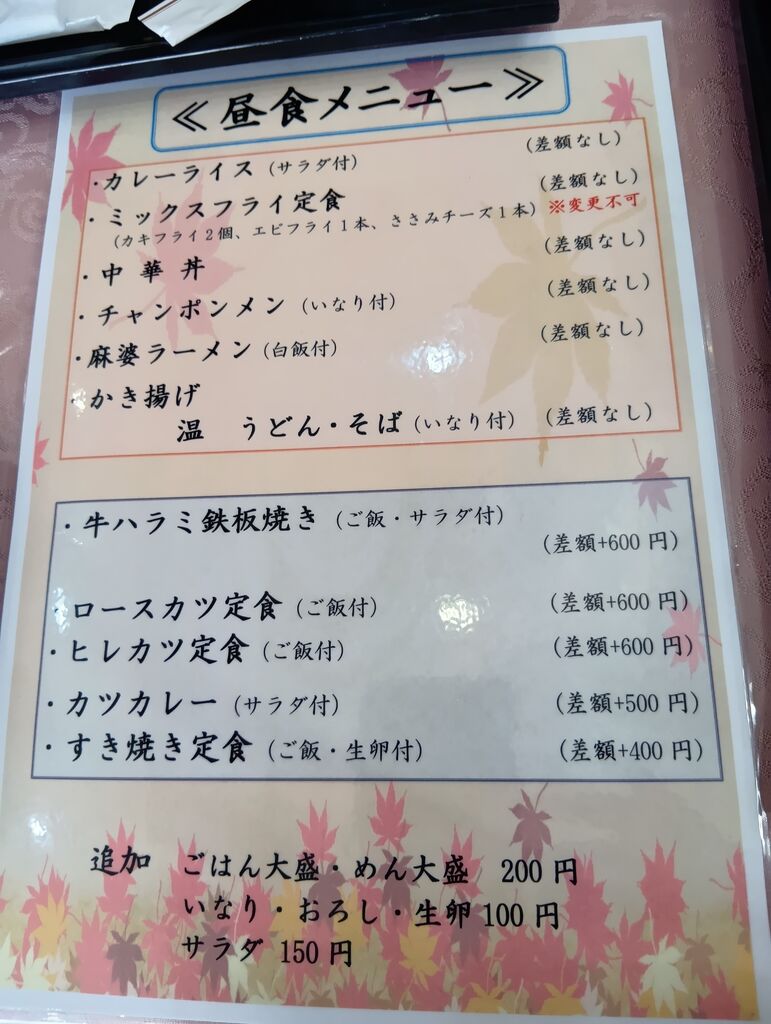 ≪昼食メニュー≫
・カレーライス(サラダ付) (差額なし)
・ミックスフライ定食 (差額なし)
(カキフライ2個、エビフライ1本、ささみチーズ1本) ※変更不可
・中華丼 (差額なし)
・チャンポンメン(いなり付) (差額なし)
・麻婆ラーメン(白飯付) (差額なし)
・かき揚げ
温 うどん・そば(いなり付) (差額なし)
・牛ハラミ鉄板焼き(ご飯・サラダ付)
(差額+600 円)
・ロースカツ定食(ご飯付) (差額+600 円)
・ヒレカツ定食(ご飯付) (差額+600 円)
・カツカレー(サラダ付) (差額+500 円)
・すき焼き定食(ご飯・生卵付) (差額+400 円)
追加 ごはん大盛・めん大盛 200 円
いなり・おろし・生卵 100 円
サラダ 150 円